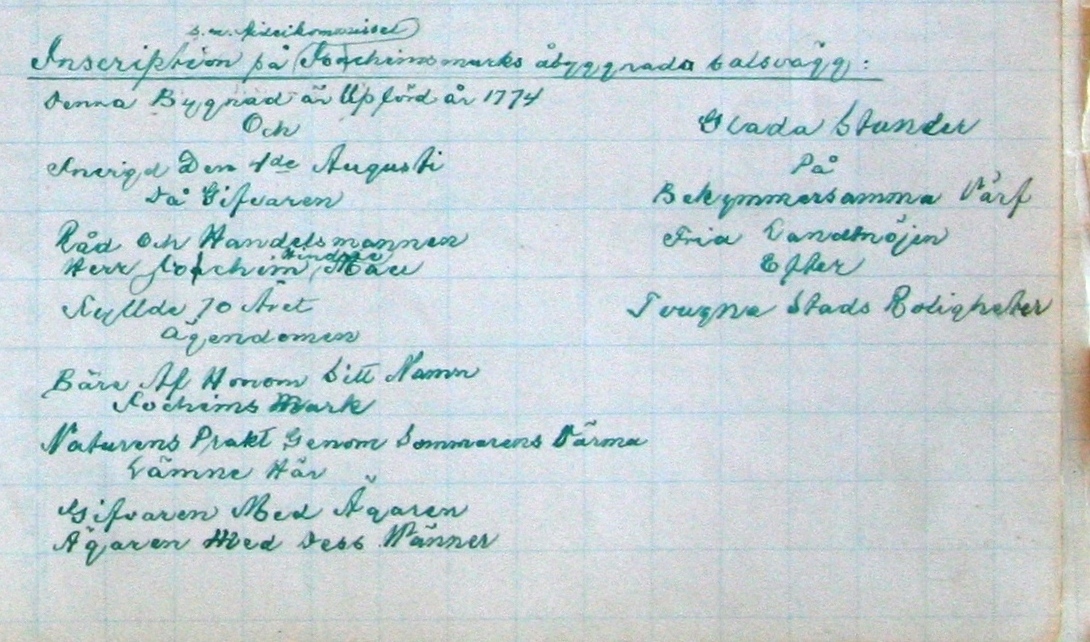 Inscription på Joachimsmarks åbyggnada salsvägg:
Denna Bygnad är Upförd år 1774
Och
Invigd Den 4de Augusti
Då Gifvaren
Råd Och Handelsmannen
Herr Jochim Hindric
Fyllde 70 Året
Ägendomen
Bäre Af Honom Sitt Namn
Jochims Mark
Naturens Prakt Genom Sommarens Värma
Lämne Här
Gifvaren Med Ägaren
Ägaren Med Dess Vänner
Glada Stunder
På
Bekymmersamma Värf
Fria Landtnöjen
Efter
Tvugna Stads Roligheter